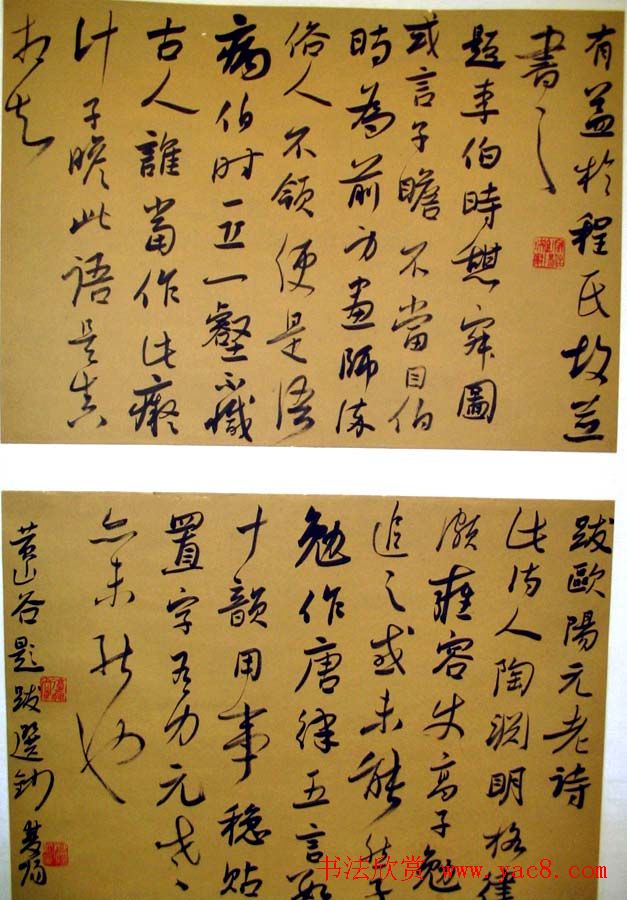 有益於程氏故并
書之
題李伯時憩寂圖
或言子瞻不當目伯
時為前身畫師流
俗人不領便是語
病伯時一丘一壑不減
古人誰當作此癡
計子瞻此語是真
相知
跋歐陽元老詩
此詩入陶淵明格律
頗雍容使高子勉
追之或未能然子
勉作唐律五言數
十韻用事穩貼
置字有力元老
亦未能也
黃山谷題跋選鈔
书法欣赏 www.yac8.com